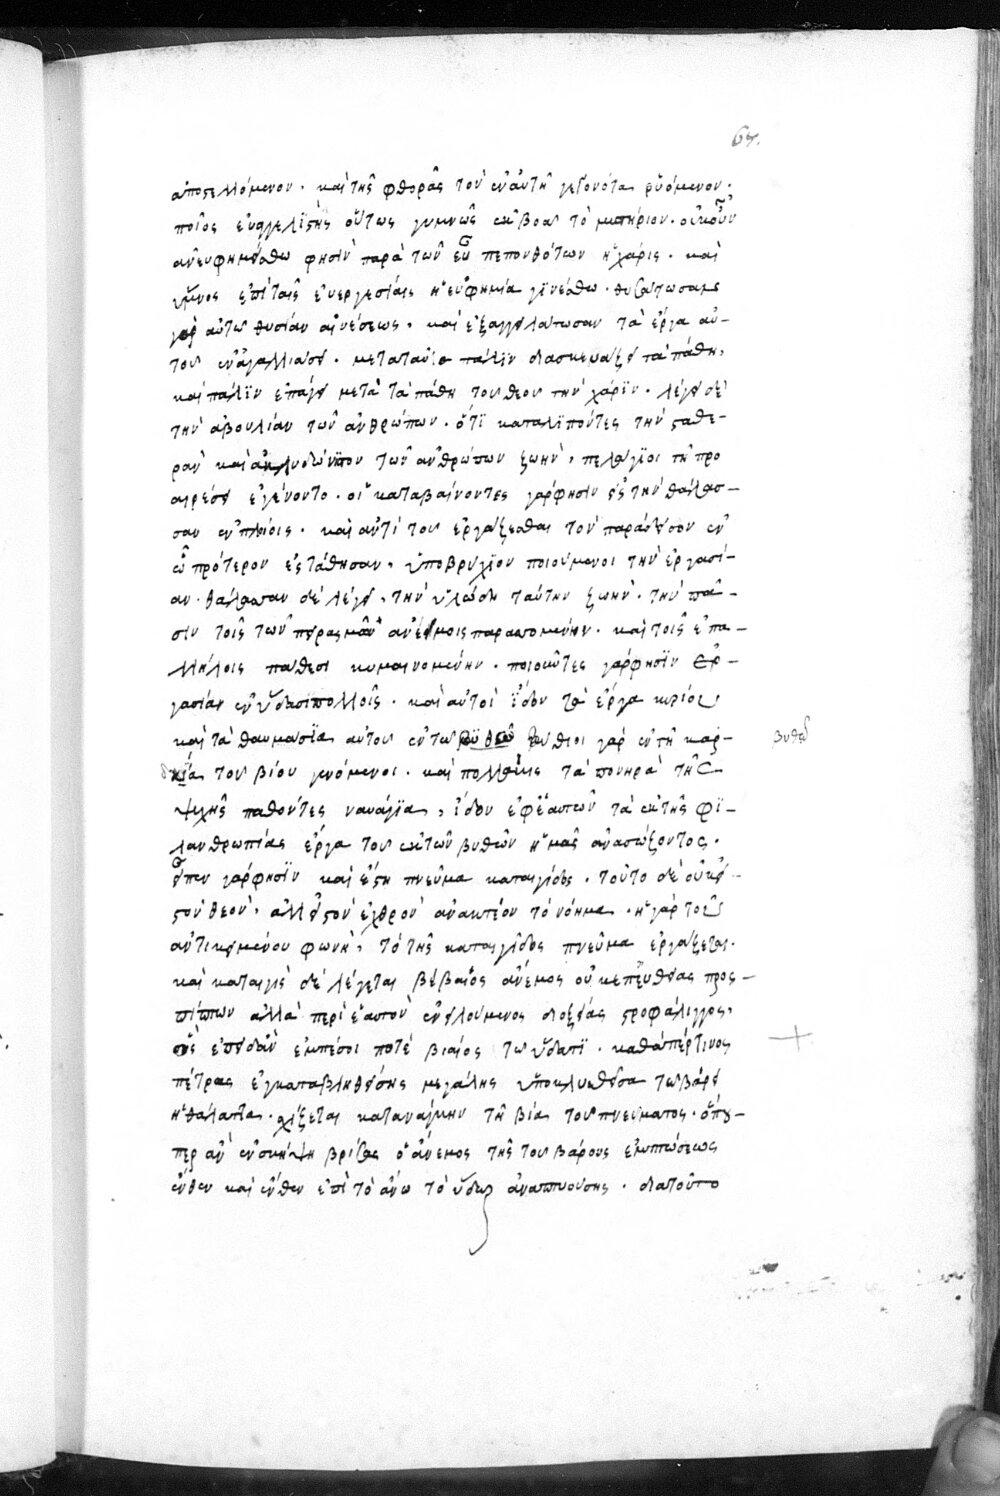 64.
ἀποστελλόμενον · καὶ τῆς φθορᾶς τὸν ἐν αὐτῆ γεγονότα ρυόμενον ·
ποῖος εὐαγγελϊστὴς οὕτως γυμνῶς ἐκβοᾶ τὸ μυστήριον · οὐκοῦν
ἀνευφημείσθω φησὶν παρὰ τῶν εὖ πεπονθότων ἡ χάρις · καὶ
ὕμνος ἐπὶ ταῖς ἐυεργεσίαις ἡ ευφημία γϊνέσθω · θυσάτωσαν
γὰρ αὐτω θυσίαν αἰνέσεως, καὶ ἐξαγγειλάτωσαν τὰ ἔργα αὐ-
του ἐν ἀγαλλιάσει · μετα ταῦτα πάλϊν διασκευάζει τα πάθη,
καὶ πάλϊν ἐπάγει μετὰ τὰ πάθη του θεου τὴν χάρϊν · λέγει δὲ
τὴν ἀβουλίαν τῶν ἀνθρώπων · ὅτϊ καταλϊπόντες τὴν σταθε-
ρὰν καὶ ἀκλυδώνϊστον τῶν ἀνθρώπων ζωὴν, πελάγϊοι τῆ προ
αιρέσει ἐγένοντο · οἱ καταβαίνοντες γάρ φησιν εἰς τὴν θάλασ-
σαν ἐν πλοίοις · καὶ ἀντὶ του ἐργάζεσθαι τὸν παράδεισον ἐν
ὧ πρότερον ἐτάθησαν, ὑποβρυχϊον ποιούμενοι τὴν ἐργασί-
αν · θάλασσαν δὲ λέγει, τὴν ὑλώδη ταύτην ζωὴν · τὴν πᾶ-
σιν τοῖς τῶν πειρασμῶν ἀνέμοις ταρασσομένην · καὶ τοῖς ἐπα-
λλήλοις πάθεσι κυμαινομένην · ποιοῦντες γάρ φησϊν ἐρ-
γασίαν ἐν ὕδασϊ πολλοῖς · καὶ αὐτοὶ ἴδον τὰ ἔργα κυρίου
καὶ τὰ θαυμασϊα αὐτου ἐν τω βυθῶ βύθιοι γὰρ ἐν τῆ καρ-
δία του βίου γενόμενοι · καὶ πολλάκις τὰ πονηρὰ τῆς
ψυχῆς παθόντες ναυάγϊα, ἴδον εφ ἑαυτῶν τὰ ἐκ τῆς φϊ-
λανθρωπίας ἔργα του ἐκ τῶν βυθῶν ἡμᾶς ἀνασώζοντος ·
εἶπεν γάρ φησϊν καὶ ἔστη πνεῦμα καταιγίδος · τοῦτο δὲ οὐκ εἰς
τὸν θεὸν, ἀλλ εἰς τὸν ἐχθρὸν ἀνακτέον τὸ νόημα · ἡ γὰρ τοῦ
ἀντικειμένου φωνὴ, τὸ τῆς καταιγίδος πνεῦμα ἐργάζεται ·
καὶ καταιγὶς δὲ λέγεται βίαιος ἄνεμος οὐκ επ εὐθείας προς-
πίπτων ἀλλὰ περὶ ἑαυτὸν εἰλούμενος διεξίας στροφάλιγγος,
ὃς ἐπειδὰν ἐμπέσοι ποτέ βιαίος τω ὕδατϊ · καθάπέρ τινος
πέτρας ἐγκαταβληθείσης μεγάλης ὑποκλυσθεῖσα τω βάρει
ἡ θάλαττα · σχίζεται κατανάγκην τῆ βία του πνεύματος · ὅπου-
περ ἂν ἐνσκήψη βρίθας ὁ ἄνεμος τῆς του βάρους ἐμπτώσεως
ἔνθεν καὶ ἔνθεν ἐπὶ τὸ ἄνω τὸ ὕδωρ ἀναπτυούσης · δια τοῦτο
βυθῶ